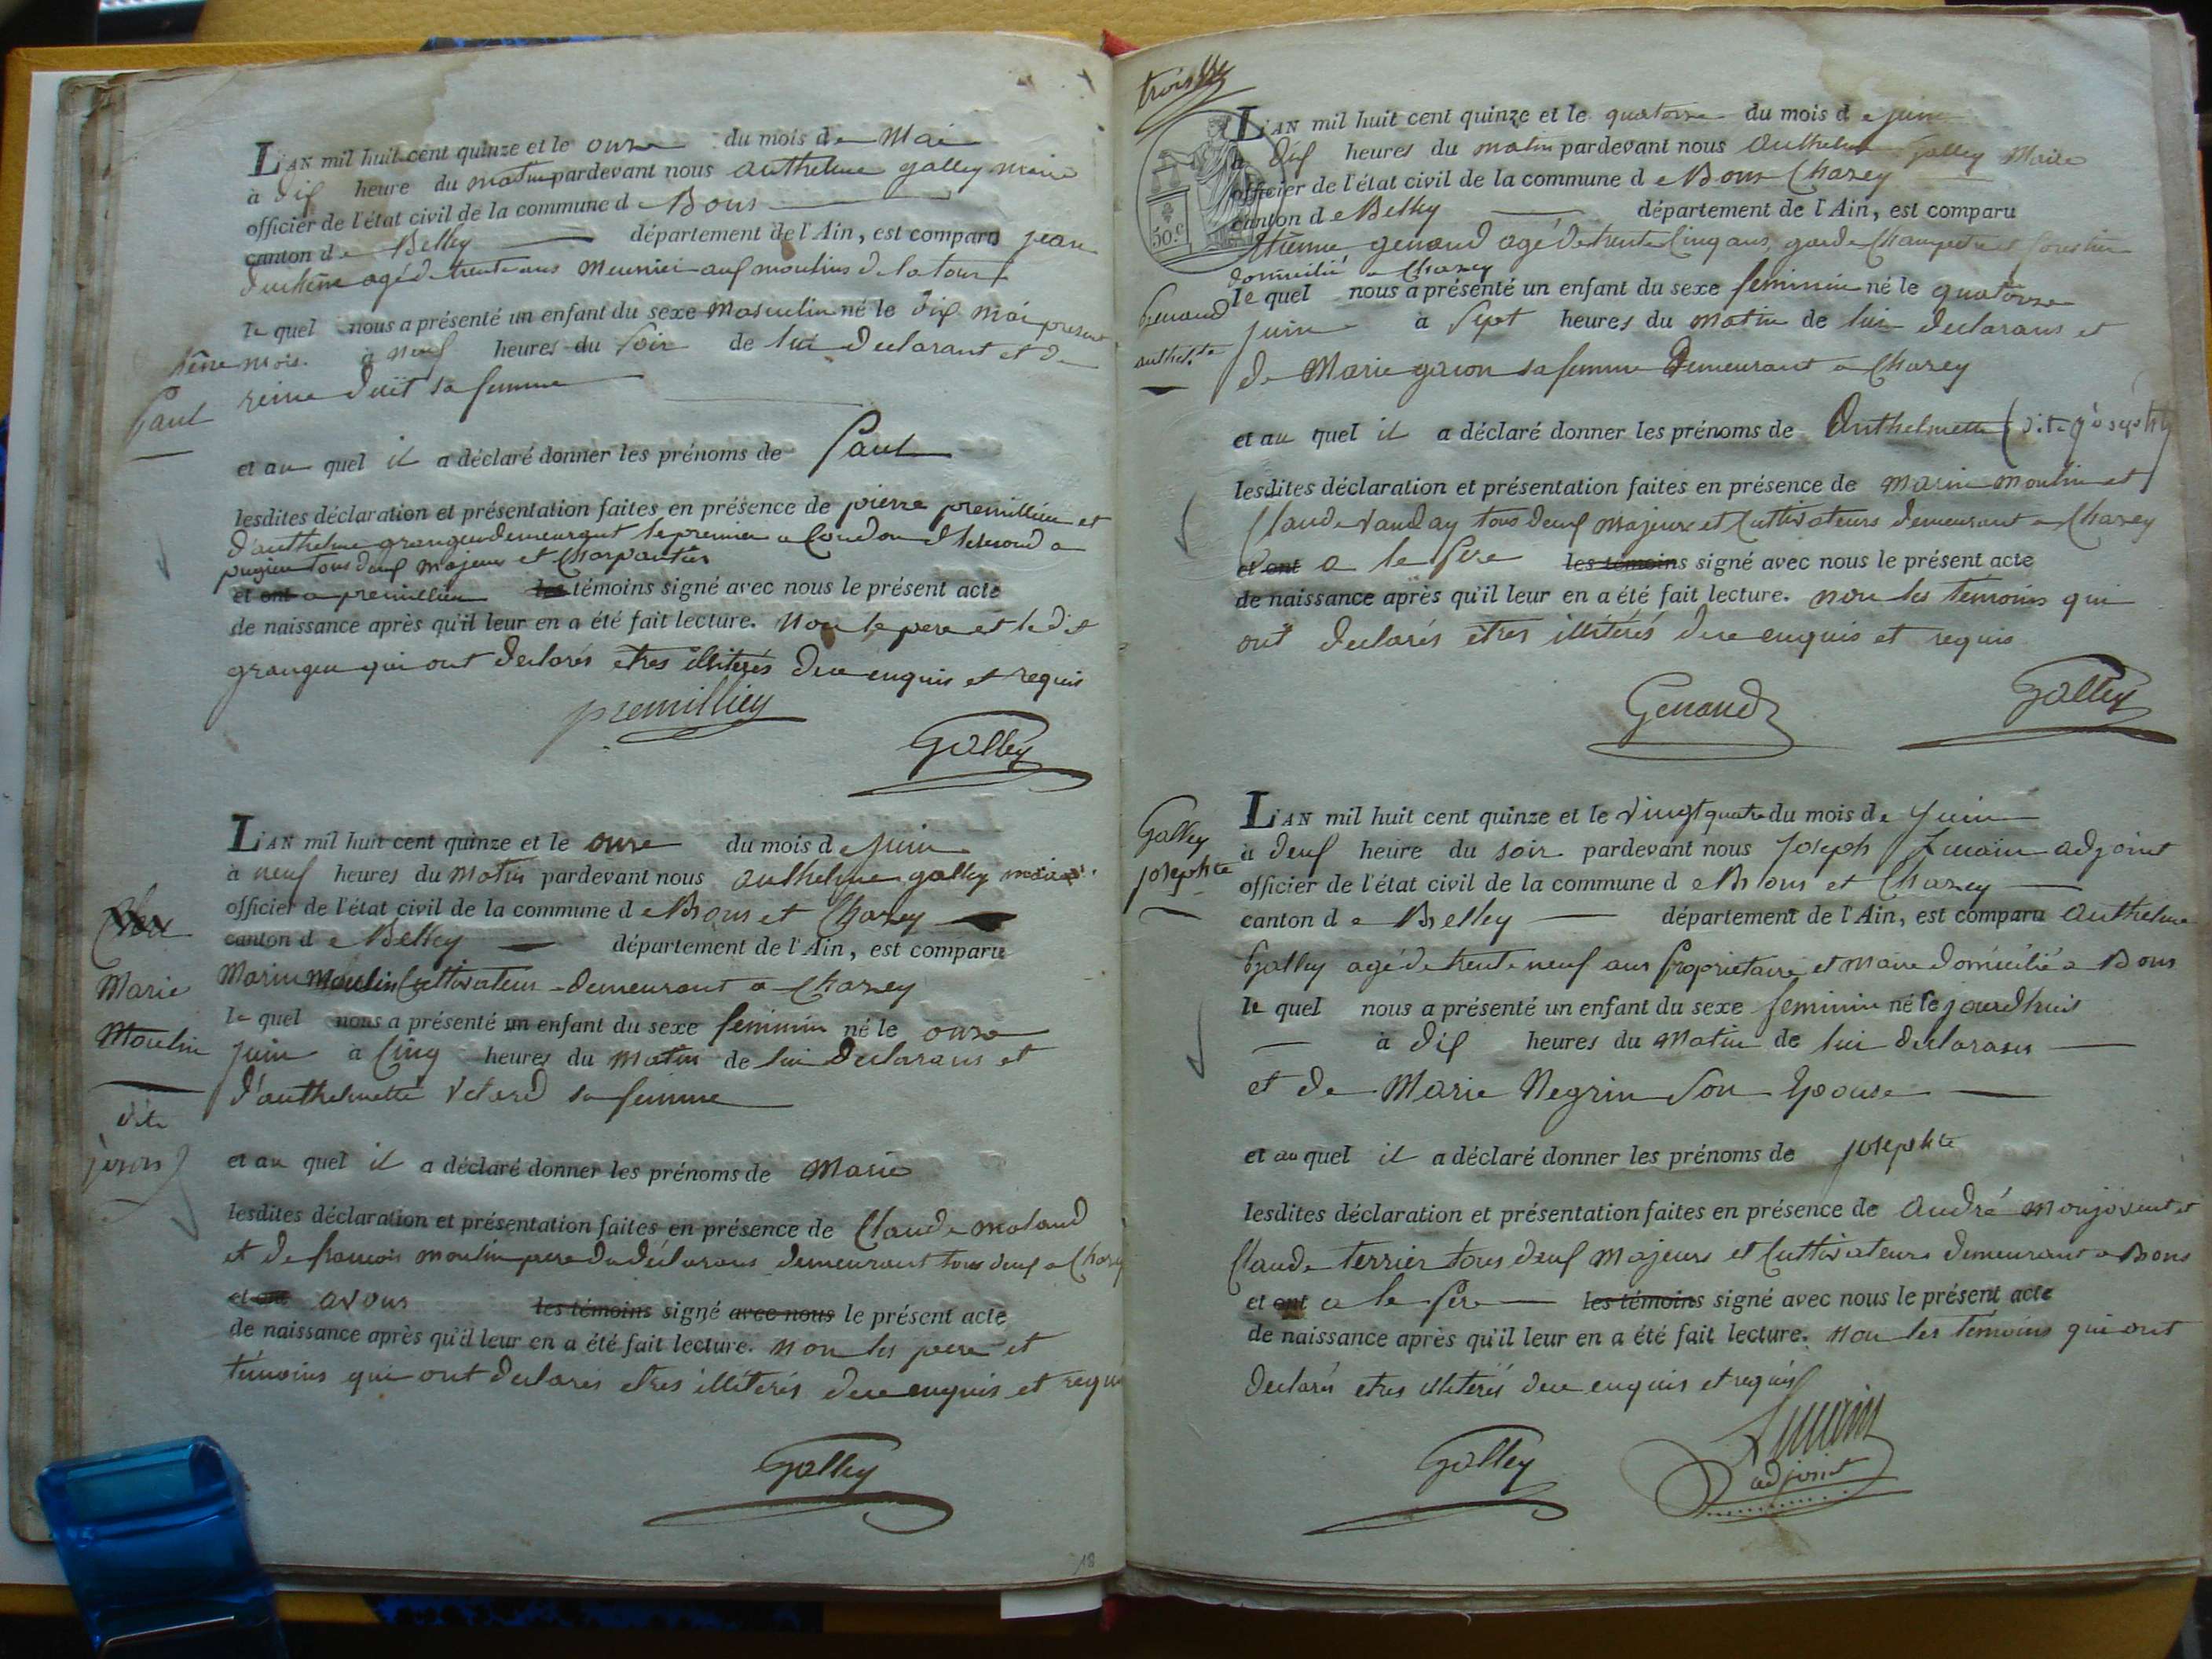 L'AN mil huit cent quinze et le onze du mois de Mai
à dix heure du matin pardevant nous anthelme galley maire
officier de l'état civil de la commune de Bons
canton de Belley département de l'Ain, est comparu jean
agé de trente ans meunier aux moulins de la tour
le quel nous a présenté un enfant du sexe masculin né le dix mai present
mois. à neuf heures du soir de lui declarant et de
Paul
reine sa femme
et au quel il a déclaré donner les prénoms de Paul
lesdites déclaration et présentation faites en présence de pierre premillieu et
d'anthelme demeurant le premier a Coudon et le second a
pugieu tous deux majeurs et Charpantiers
et ont a premillieu les témoins signé avec nous le présent acte
de naissance après qu'il leur en a été fait lecture. Non le pere et le dit
qui ont declarés etres illiterés de ce enquis et requis
premilliey
Galley
L'AN mil huit cent quinze et le onze du mois de juin
à neuf heures du matin pardevant nous anthelme galley maire
officier de l'état civil de la commune de Bons et Chazey
canton de Belley département de l'Ain, est comparu
Marin Moulin Cultivateur demeurant a Chazey
Marie
Moulin
dite
le quel nous a présenté un enfant du sexe feminin né le onze
juin à Cinq heures du matin de lui declarans et
d'anthelmette sa femme
et au quel il a déclaré donner les prénoms de Marie
lesdites déclaration et présentation faites en présence de Claude
et de francois moulin pere du déclarans demeurant tous deux a Chazey
et ont avons les témoins signé avec nous le présent acte
de naissance après qu'il leur en a été fait lecture. non les pere et
témoins qui ont declarés etres illiterés de ce enquis et requis
Galley
18
50.c
L'AN mil huit cent quinze et le quatorze du mois de juin
à dix heures du matin pardevant nous Anthelme Galley Maire
officier de l'état civil de la commune de Bons Chazey
canton de Belley département de l'Ain, est comparu
Etienne genand agé de trente Cinq ans, garde Champetre et forestier
domicilié a Chazey
Genand
anthelte
le quel nous a présenté un enfant du sexe feminin né le quatorze
juin à sept heures du matin de lui declarans et
de Marie sa femme demeurant a Chazey
et au quel il a déclaré donner les prénoms de Anthelmette
lesdites déclaration et présentation faites en présence de Marin Moulin et
Claude tous deux majeurs et Cultivateurs demeurant a Chazey
et ont a le Pere les témoins signé avec nous le présent acte
de naissance après qu'il leur en a été fait lecture. non les temoins qui
ont declarés etres illiterés de ce enquis et requis
Genand
Galley
Galley
josephte
L'AN mil huit cent quinze et le vingt quatre du mois de juin
à deux heure du soir pardevant nous Joseph adjoint
officier de l'état civil de la commune de Bons et Chazey
canton de Belley département de l'Ain, est comparu Anthelme
Galley agé de trente neuf ans proprietaire et maire domicilié a Bons
le quel nous a présenté un enfant du sexe feminin né le jourdhuit
à dix heures du matin de lui declarans
et de Marie Negrin son Epouse
et au quel il a déclaré donner les prénoms de josephte
lesdites déclaration et présentation faites en présence de André et
Claude terrier tous deux majeurs et Cultivateurs demeurant a Bons
et ont a le Pere les témoins signé avec nous le présent acte
de naissance après qu'il leur en a été fait lecture. Non les temoins qui ont
declarés etres illiterés de ce enquis et requis
Galley
adjoint